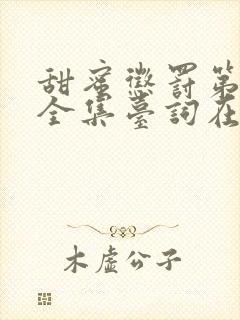 甜蜜懲罰第
全集臺詞在
木虛公子